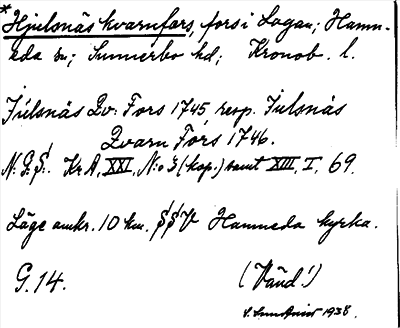 *Hjulsnäs kvarnfors, fors i Lagan; Hamn-
eda sn; Sunnerbo hd; Kronob. l.
Julsnäs Qv: Fors 1745, resp. Julsnäs
Qvarn Fors 1746.
N: G. §: KrA, XXI, N:o 3 (kop.) samt XIII, I, 69.
Läge omkr. 10 km. SSV Hamneda kyrka.
G. 14. (Vänd!)
1938.